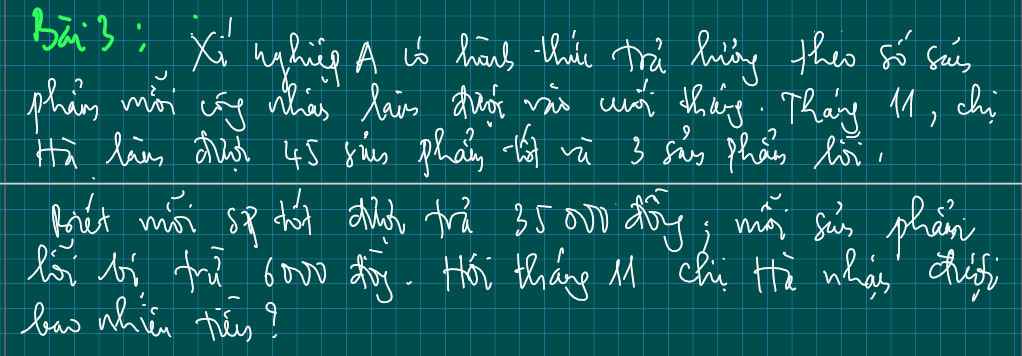 Bài 3 :
Xí nghiệp A có hình thức trả lương theo số sản
phẩm mỗi công nhân làm được vào cuối tháng. Tháng 11, chị
Hà làm được 45 sản phẩm tốt và 3 sản phẩm lỗi.
Biết mỗi sp tốt được trả 35000 đồng; mỗi sản phẩm
lỗi bị trừ 6000 đồng. Hỏi tháng 11 chị Hà nhận được
bao nhiêu tiền?